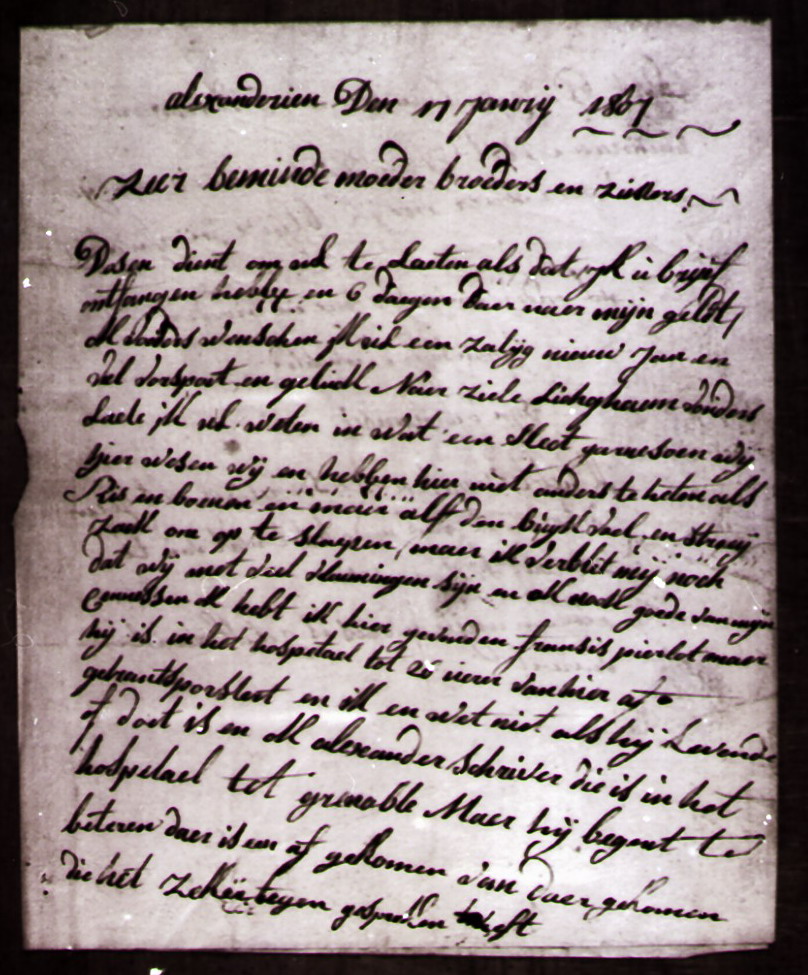 alexanderien Den 17 Janrij 1807
zeer beminde moeder broeders en zusters
Desen dient om ul te Laeten als dat ijk u brijf
ontfangen hebbe en 6 daegen daer naer mijn geldt
wenschen ik ul een zalijg nieuw Jaer en
vel vorspoet en geluck Naer ziele Lichghaem vonders
Laete jk ul weten in wat een slegt garnesoen wij
hier wesen wij en hebben hier niet anders te heten als
Ris en boenen en maer alf den buijk vael en stroij
zack om op te slaepen maer ik verblit mij noch
dat wij met veel vlamingen sijn en ok noch goede van mijn
kennissen ok hebt ik hier gevonden fransis pierlot maer
hij is in het hospetael tot 20 ueren van hier af
getrantsporsteert en ik en wet niet als hij Levende
of doet is en ok alexander schriver die is in het
hospetael tot grenoble Maer hij begent te
beteren daer is een af gekomen van daer gekomen
die het zelve tegen gesproken heeft